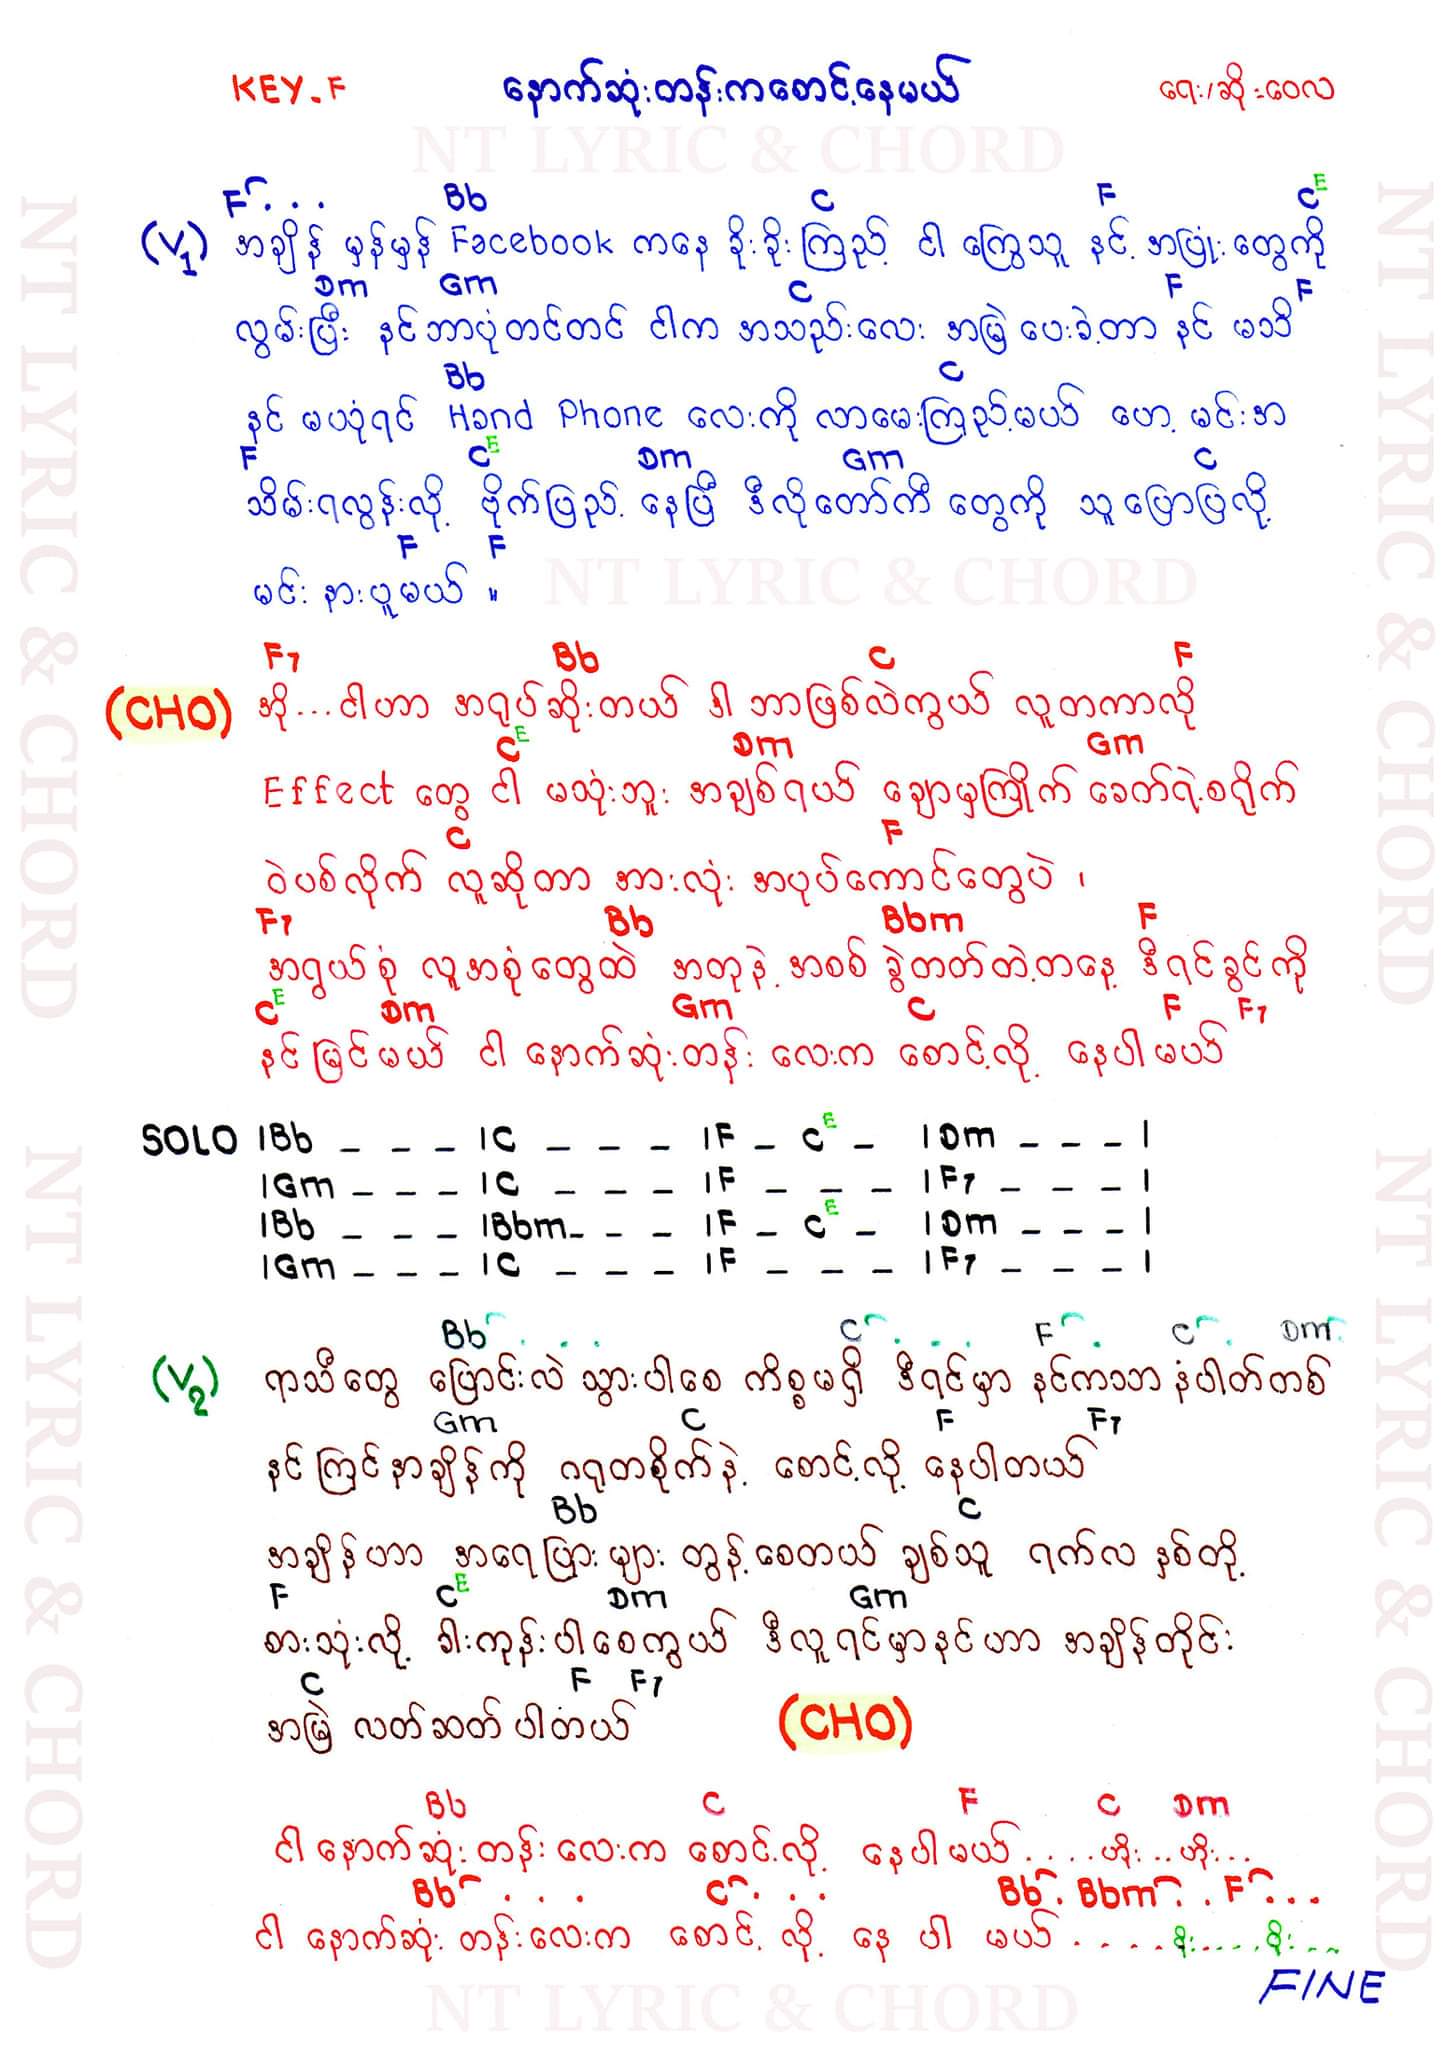 KEY.F နောက်ဆုံးတန်းကစောင့်နေမယ် ရေး/ဆို = ဝေလ
NT LYRIC & CHORD
F . . . Bb C F C E
(V1) အချိန် မှန်မှန် Facebook ကနေ ခိုးခိုးကြည့် ငါ ကြွေသူ နင့် အပြုံးတွေကို
Dm Gm C F F
လွမ်းပြီး နင်ဘာပုံတင်တင် ငါက အသည်းလေး အမြဲပေးခဲ့တာ နင် မသိ
Bb C
နင် မယုံရင် Hand Phone လေးကို လာမေးကြည့်မယ် ဟေ့ မင်းအ
F C E Dm Gm C
သိမ်းရလွန်းလို့ ဗိုက်ပြည့် နေပြီ ဒီလိုတော်ကီ တွေကို သူပြောပြလို့
F F
မင်း နားပူမယ် ။
NT LYRIC & CHORD
F7 Bb C F
(CHO) အို...ငါဟာ အရုပ်ဆိုးတယ် ဒါ ဘာဖြစ်လဲကွယ် လူတကာလို
C E Dm Gm
Effect တွေ ငါ မသုံးဘူး အချစ်ရယ် ချောမှကြိုက် ခေတ်ရဲ့စရိုက်
C F
ဝဲပစ်လိုက် လူဆိုတာ အားလုံး အပုပ်ကောင်တွေပဲ ၊
F7 Bb Bbm F
အရွယ်စုံ လူအစုံတွေထဲ အတုနဲ့ အစစ် ခွဲတတ်တဲ့တနေ့ ဒီရင်ခွင်ကို
C E Dm Gm C F F7
နင်မြင်မယ် ငါ နောက်ဆုံးတန်း လေးက စောင့်လို့ နေပါမယ်
SOLO |Bb _ _ _ |C _ _ _ |F _ C E _ |Dm _ _ _ |
|Gm _ _ _ |C _ _ _ |F _ _ _ |F7 _ _ _ |
|Bb _ _ _ |Bbm _ _ _ |F _ C E _ |Dm _ _ _ |
|Gm _ _ _ |C _ _ _ |F _ _ _ |F7 _ _ _ |
Bb . . . C . . . F . C . Dm .
(V2) ရာသီတွေ ပြောင်းလဲ သွားပါစေ ကိစ္စမရှိ ဒီရင်မှာ နင်ကသာ နံပါတ်တစ်
Gm C F F7
နင်ကြင်နာချိန်ကို ဂရုတစိုက်နဲ့ စောင့်လို့ နေပါတယ်
Bb C
အချိန်ဟာ အရေပြားများ တွန့်စေတယ် ချစ်သူ ရက်လ နှစ်တို့
F C E Dm Gm
စားသုံးလို့ ခါးကုန်းပါစေကွယ် ဒီလူ့ရင်မှာနင်ဟာ အချိန်တိုင်း
C F F7
အမြဲ လတ်ဆတ်ပါတယ် (CHO)
Bb C F C Dm
ငါ နောက်ဆုံး တန်း လေးက စောင့်လို့ နေပါမယ် . . . . ဟိုး . . ဟိုး . . .
Bb . . . C . . . Bb . Bbm . . F . . .
ငါ နောက်ဆုံး တန်းလေးက စောင့် လို့ နေ ပါ မယ် . . . . .
FINE
NT LYRIC & CHORD
NT LYRIC & CHORD
NT LYRIC & CHORD
NT LYRIC & CHORD
NT LYRIC & CHORD